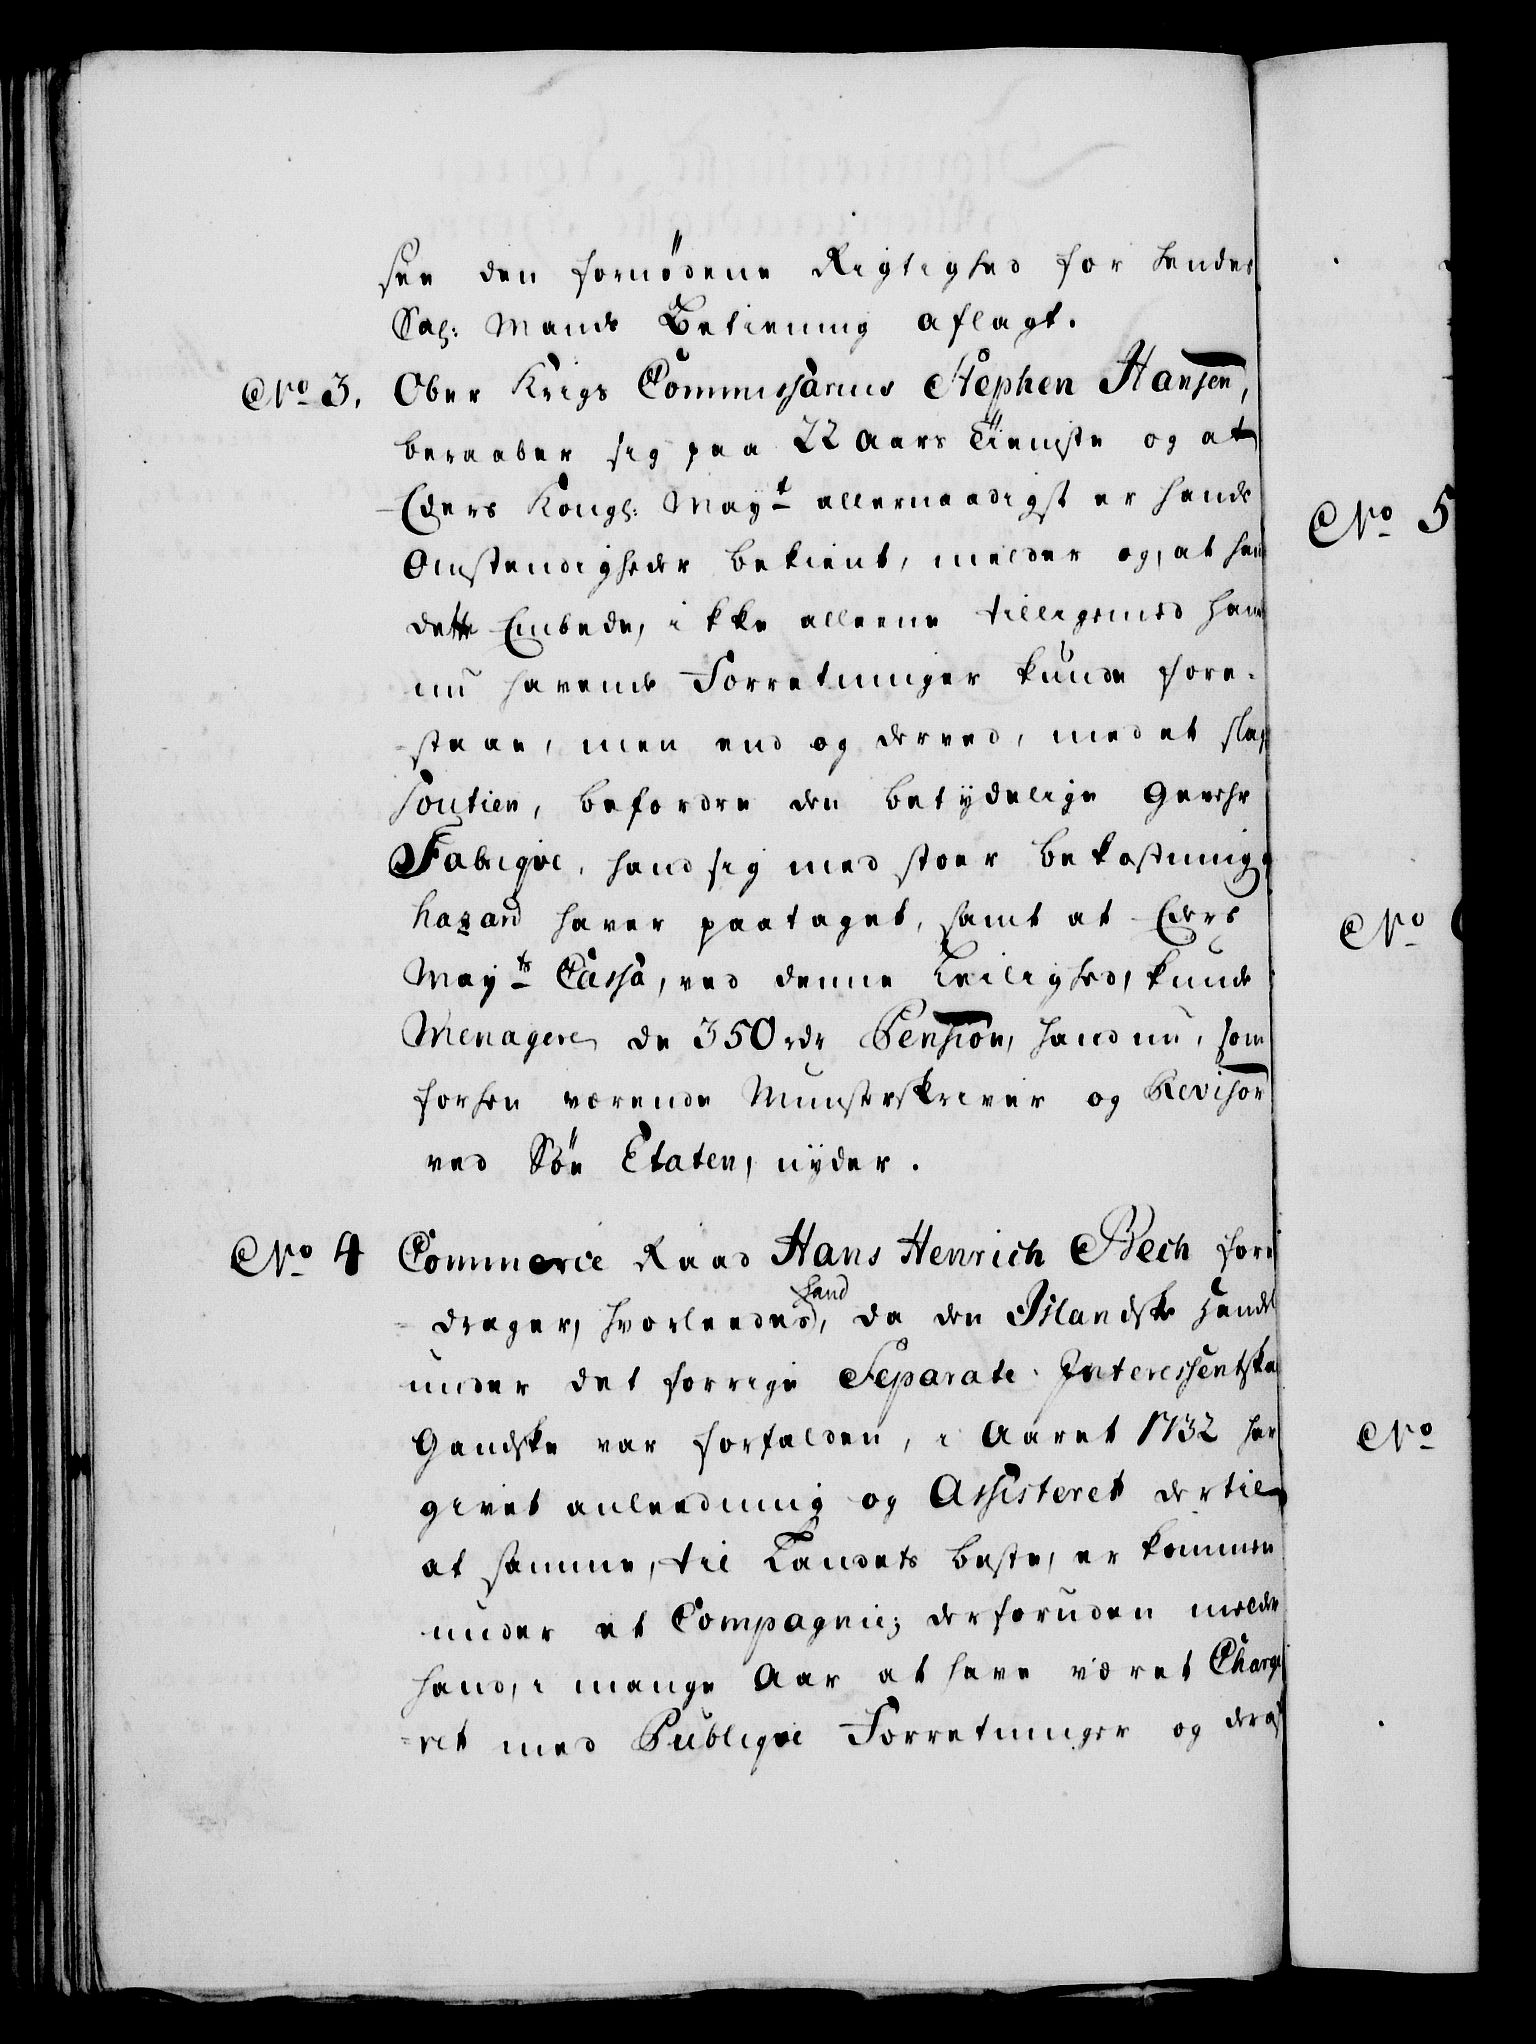 see den fornødene Rigtighed for hendes
Sal: Mands Betiening aflagt.
No 3. Ober Krigs Commissarius Stephen Hansen,
beraaber sig paa 22 Aars Tieniste og at
Eders Kongl: Mayt allernaadigst er hands
Omstendigheder bekient, melder og, at hand
dette Embede, ikke alleene tilligemed hans
nu havende Forretninger kunde fore-
staae, men end og derved, med et slags
Soutien, befordre den betydelige Gevehr
Fabrique, hand sig med stoer bekostning og
hazard haver paataget, samt at Eders
Mayts Cassa, ved denne Leilighed, kunde
Menagere de 350 rdr Pension, hand nu, som
forhen værende Munsterskriver og Revisor
ved Søe Etaten, nyder.
No 4 Commerce Raad Hans Henrich Bech fore
drager, hvorleedes, hand da den Islandske Handel
under det forrige Separate Interessentskab
Gandske var forfalden, i Aaret 1732 har
givet anleedning og Assisteret dertil
at samme, til Landets beste, er kommen
under et Compagnie; derforuden melder
hand, i mange Aar at have været Charge
ret med Publique Forretninger og deraf
No 5
No
No